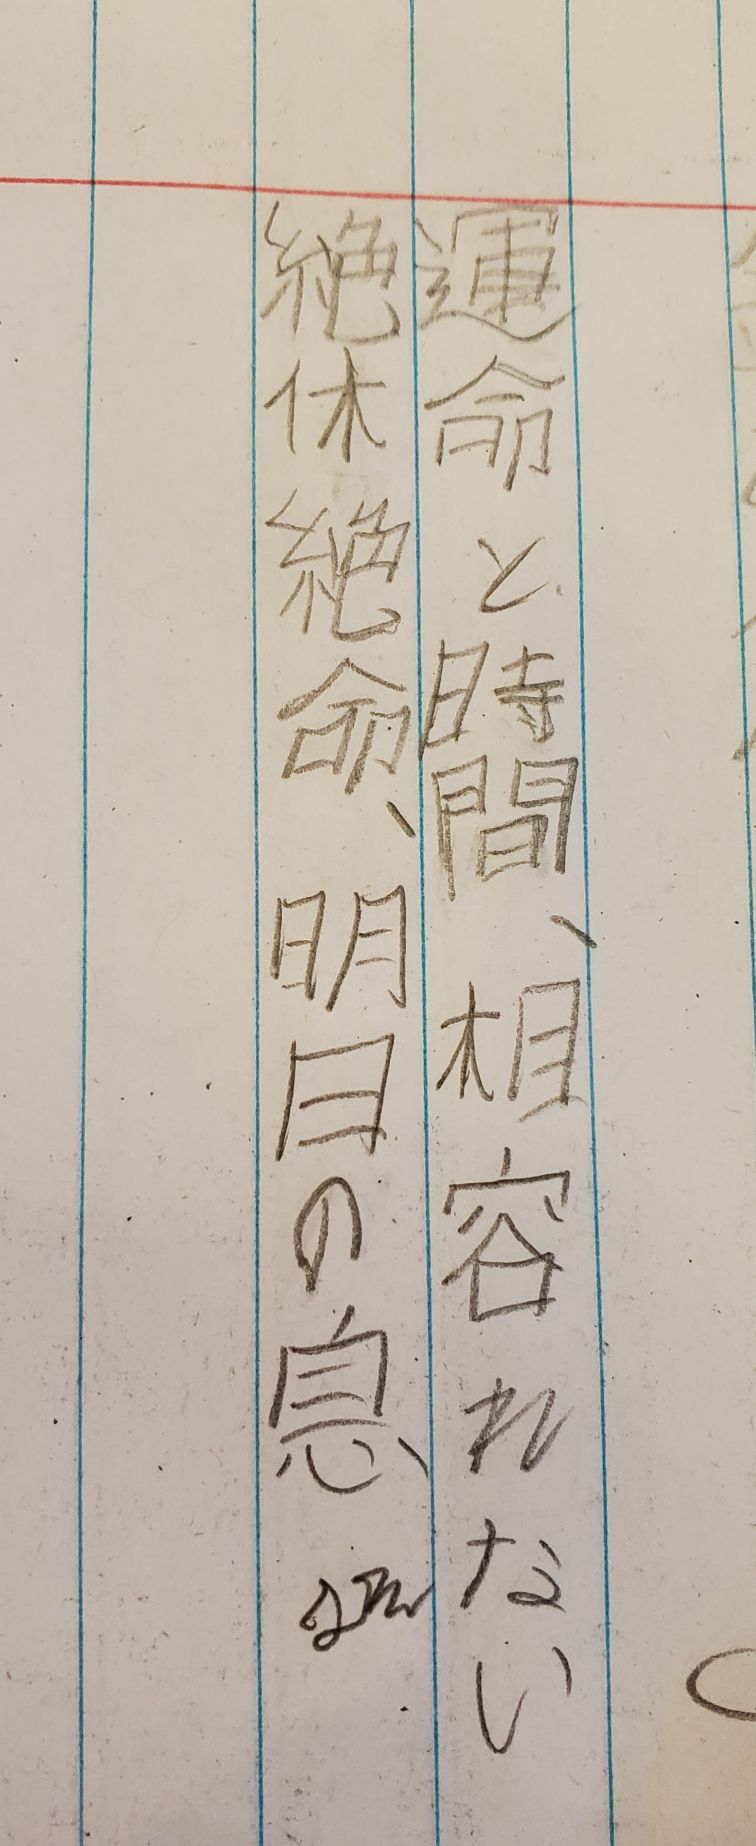 運命と時間、相容れない
絶休絶命、明日の息